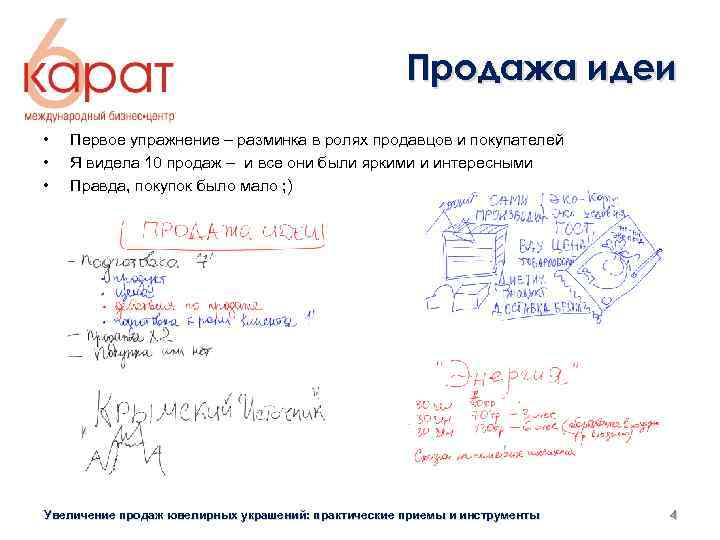 6 карат
международный бизнес•центр
Продажа идеи
• Первое упражнение – разминка в ролях продавцов и покупателей
• Я видела 10 продаж – и все они были яркими и интересными
• Правда, покупок было мало ; )
ПРОДАЖА ИДЕИ
– Подготовка 7'
• продукт
• цена
• действия по продаже
• подготовка к роли клиента 1'
– Продажа х 2
– Покупка или нет
САМИ
ПРОИЗВОДИМ
ЭКО-
ГОСТ
ЦЕНА
ДОСТАВКА
КРЫМСКИЙ ИСТОЧНИК
"Энергия"
30 мл
30 мл 70 гр – 3 мес
30 мл 130 гр – 6 мес
Увеличение продаж ювелирных украшений: практические приемы и инструменты
4